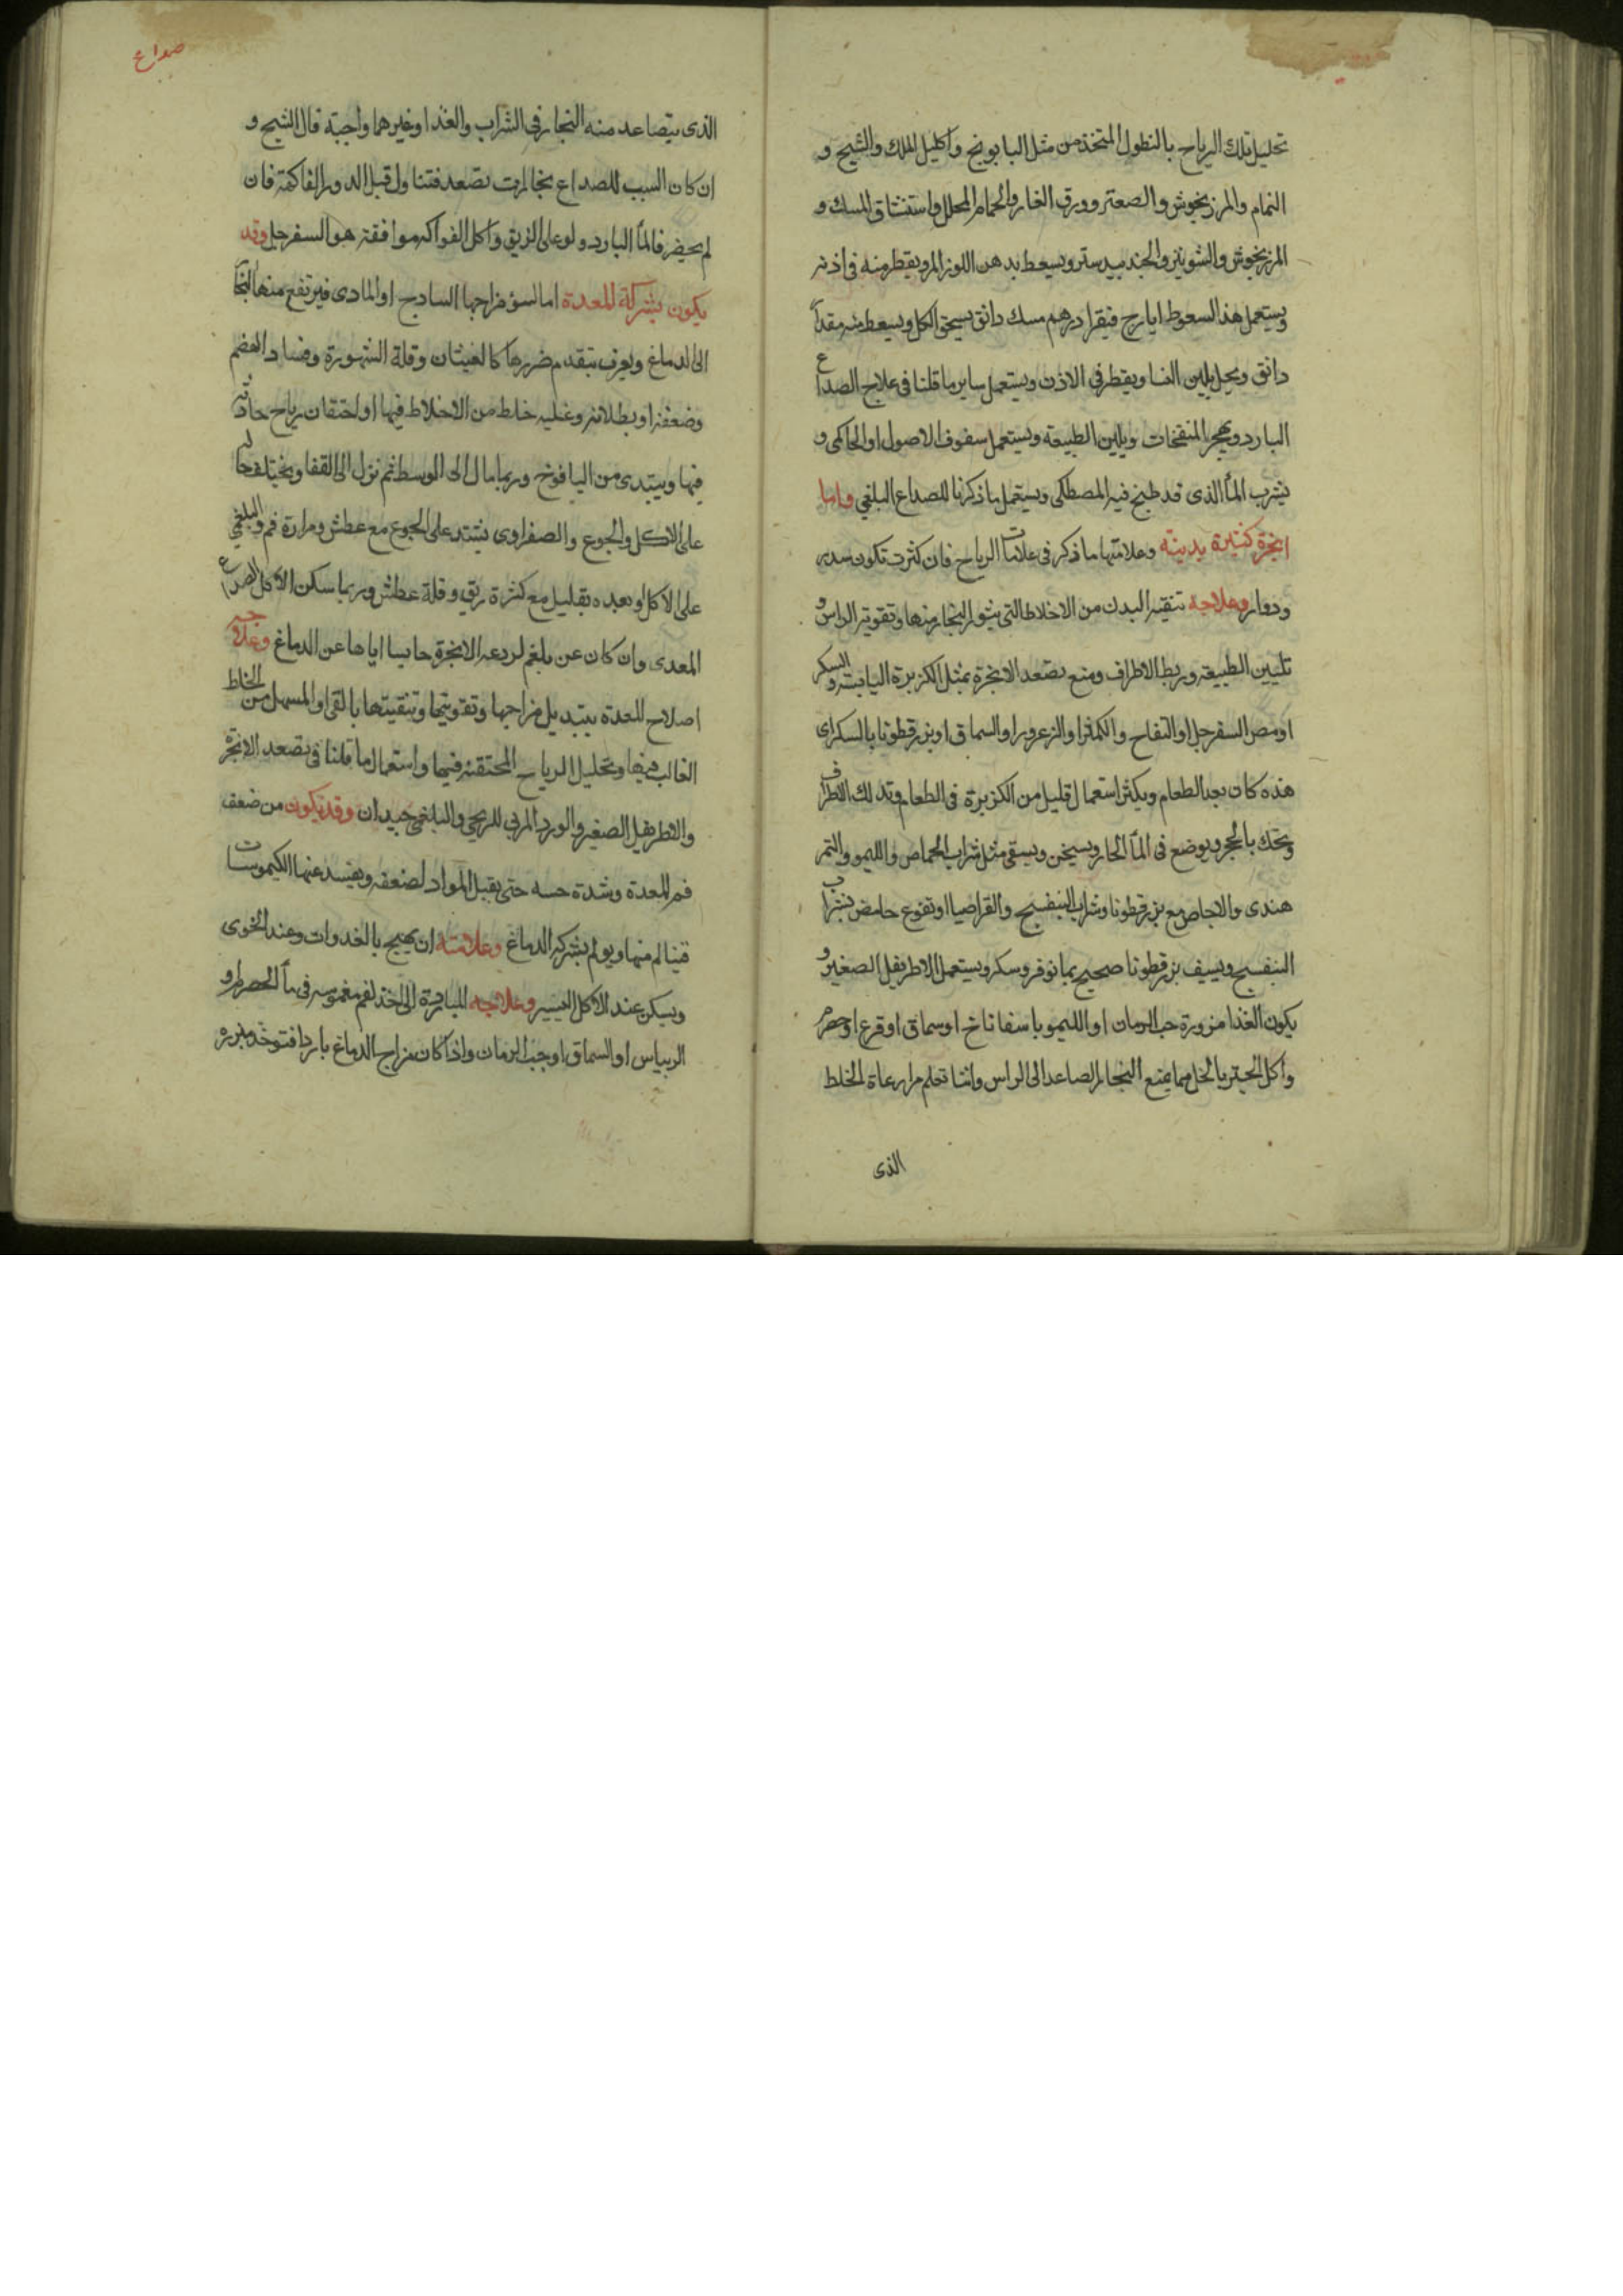 تحليل تلك الرياح بالنطول المتخذ من مثل البابونج واكليل الملك والشيح و
النمام والمرزنجوش والصعتر وورق الغار والحمام المحلل واستنشاق المسك و
المرزنجوش والشونيز والجندبيدستر ويسعط بدهن اللوز المر ويقطر منه في اذنه
ويستعمل هذا السعوط ايارج فيقرا درهم مسك دانق يسحق الكل ويسعط منه مقدار
دانق ويحل بلبن النسا ويقطر في الاذن ويستعمل ساير ما قلنا في علاج الصداع
البارد ويهجر المنفخات ويلين الطبيعة ويستعمل سفوف الاصول او الحاكمي و
يشرب الماً الذى قد طبخ فيه المصطكى ويستعمل ما ذكرنا للصداع البلغمي واما
ابخرة كثيرة بدنية وعلامتها ما ذكر في علامات الرياح فان كثرت تكون سدر
ودوار وعلاجه تنقية البدن من الاخلاط التي يثور البخار منها وتقوية الراس و
تليين الطبيعة وربط الاطراف ومنع تصعد الابخرة بمثل الكزبرة اليابسة والسكر
او مص السفرجل او التفاح والكمثرا والزعرور او السماق او بزرقطونا بالسكر اى
هذه كان بعد الطعام ويكثر استعمال قليل من الكزبرة في الطعام وتدلك الاطراف
وتحك بالحجر ويوضع في الماً الحار ويسخن ويسقى مثل شراب الحماض والليمو والتمر
هندى والاجاص مع بزرقطونا وشراب البنفسج والقراصيا او نقوع حامض بشراب
البنفسج ويسف بزرقطونا صحيح بمانوفر وسكر ويستعمل الاطريفل الصغير و
يكون الغذا مزورة حب الرمان او الليمو باسفاناخ او سماق او قرع او حصرم
واكل الخبز بالخل مما يمنع البخار الصاعد الى الراس وانشا تعلم مراعاة الخلط
الذى
صداع
الذى يتصاعد منه البخار في الشراب والغذا وغيرهما واجبة قال الشيح و
ان كان السبب للصداع بخارات تصعد فتناول قبل الدور الفاكهة فان
لم يحضر فالماً البارد ولو على الريق واكل الفواكه موافقة هو السفرجل وقد
يكون بشركة المعدة اما لسؤ مزاجها السادج او المادى فيرتفع منها البخار
الى الدماغ ويعرف بتقدم ضررها كالغيثان وقلة الشهوة وفساد الهضم
وضعفه او بطلانه وغلبه خلط من الاخلاط فيها او احتقان رياح حادثة
فيها ويبتدى من اليافوخ وربما مال الى الوسط ثم نزل الى القفا ويختلف حاله
على الاكل والجوع والصفراوى يشتد على الجوع مع عطش ومرارة فم والبلغمي
على الاكل او بعده بقليل مع كثرة ريق وقلة عطش وربما سكن الاكل الصداع
المعدى وان كان عن بلغم لردعه الابخرة حابسا اياها عن الدماغ وعلاجه
اصلاح المعدة بتبديل مزاجها وتقويتها وتنقيتها بالقى او المسهل من الخلط
الغالب فيها وتحليل الرياح المحتقنة فيها واستعمال ما قلنا في تصعد الابخرة
والاطريفل الصغير والورد المربي للريحي والبلغمي جيدان وقد يكون من ضعف
فم المعدة وشدة حسه حتى يقبل المواد لضعفه ويفسد عنها الكيموسات
فيتالم منها ويولم بشركه الدماغ وعلامته ان يهيج بالغدوات وعند الخوى
ويسكن عند الاكل اليسير وعلاجه المبادرة الى اخذ لقم مغموسه في ماً الحصرم او
الريباس او السماق او حب الرمان واذا كان مزاج الدماغ باردا فتوخذ مبزره